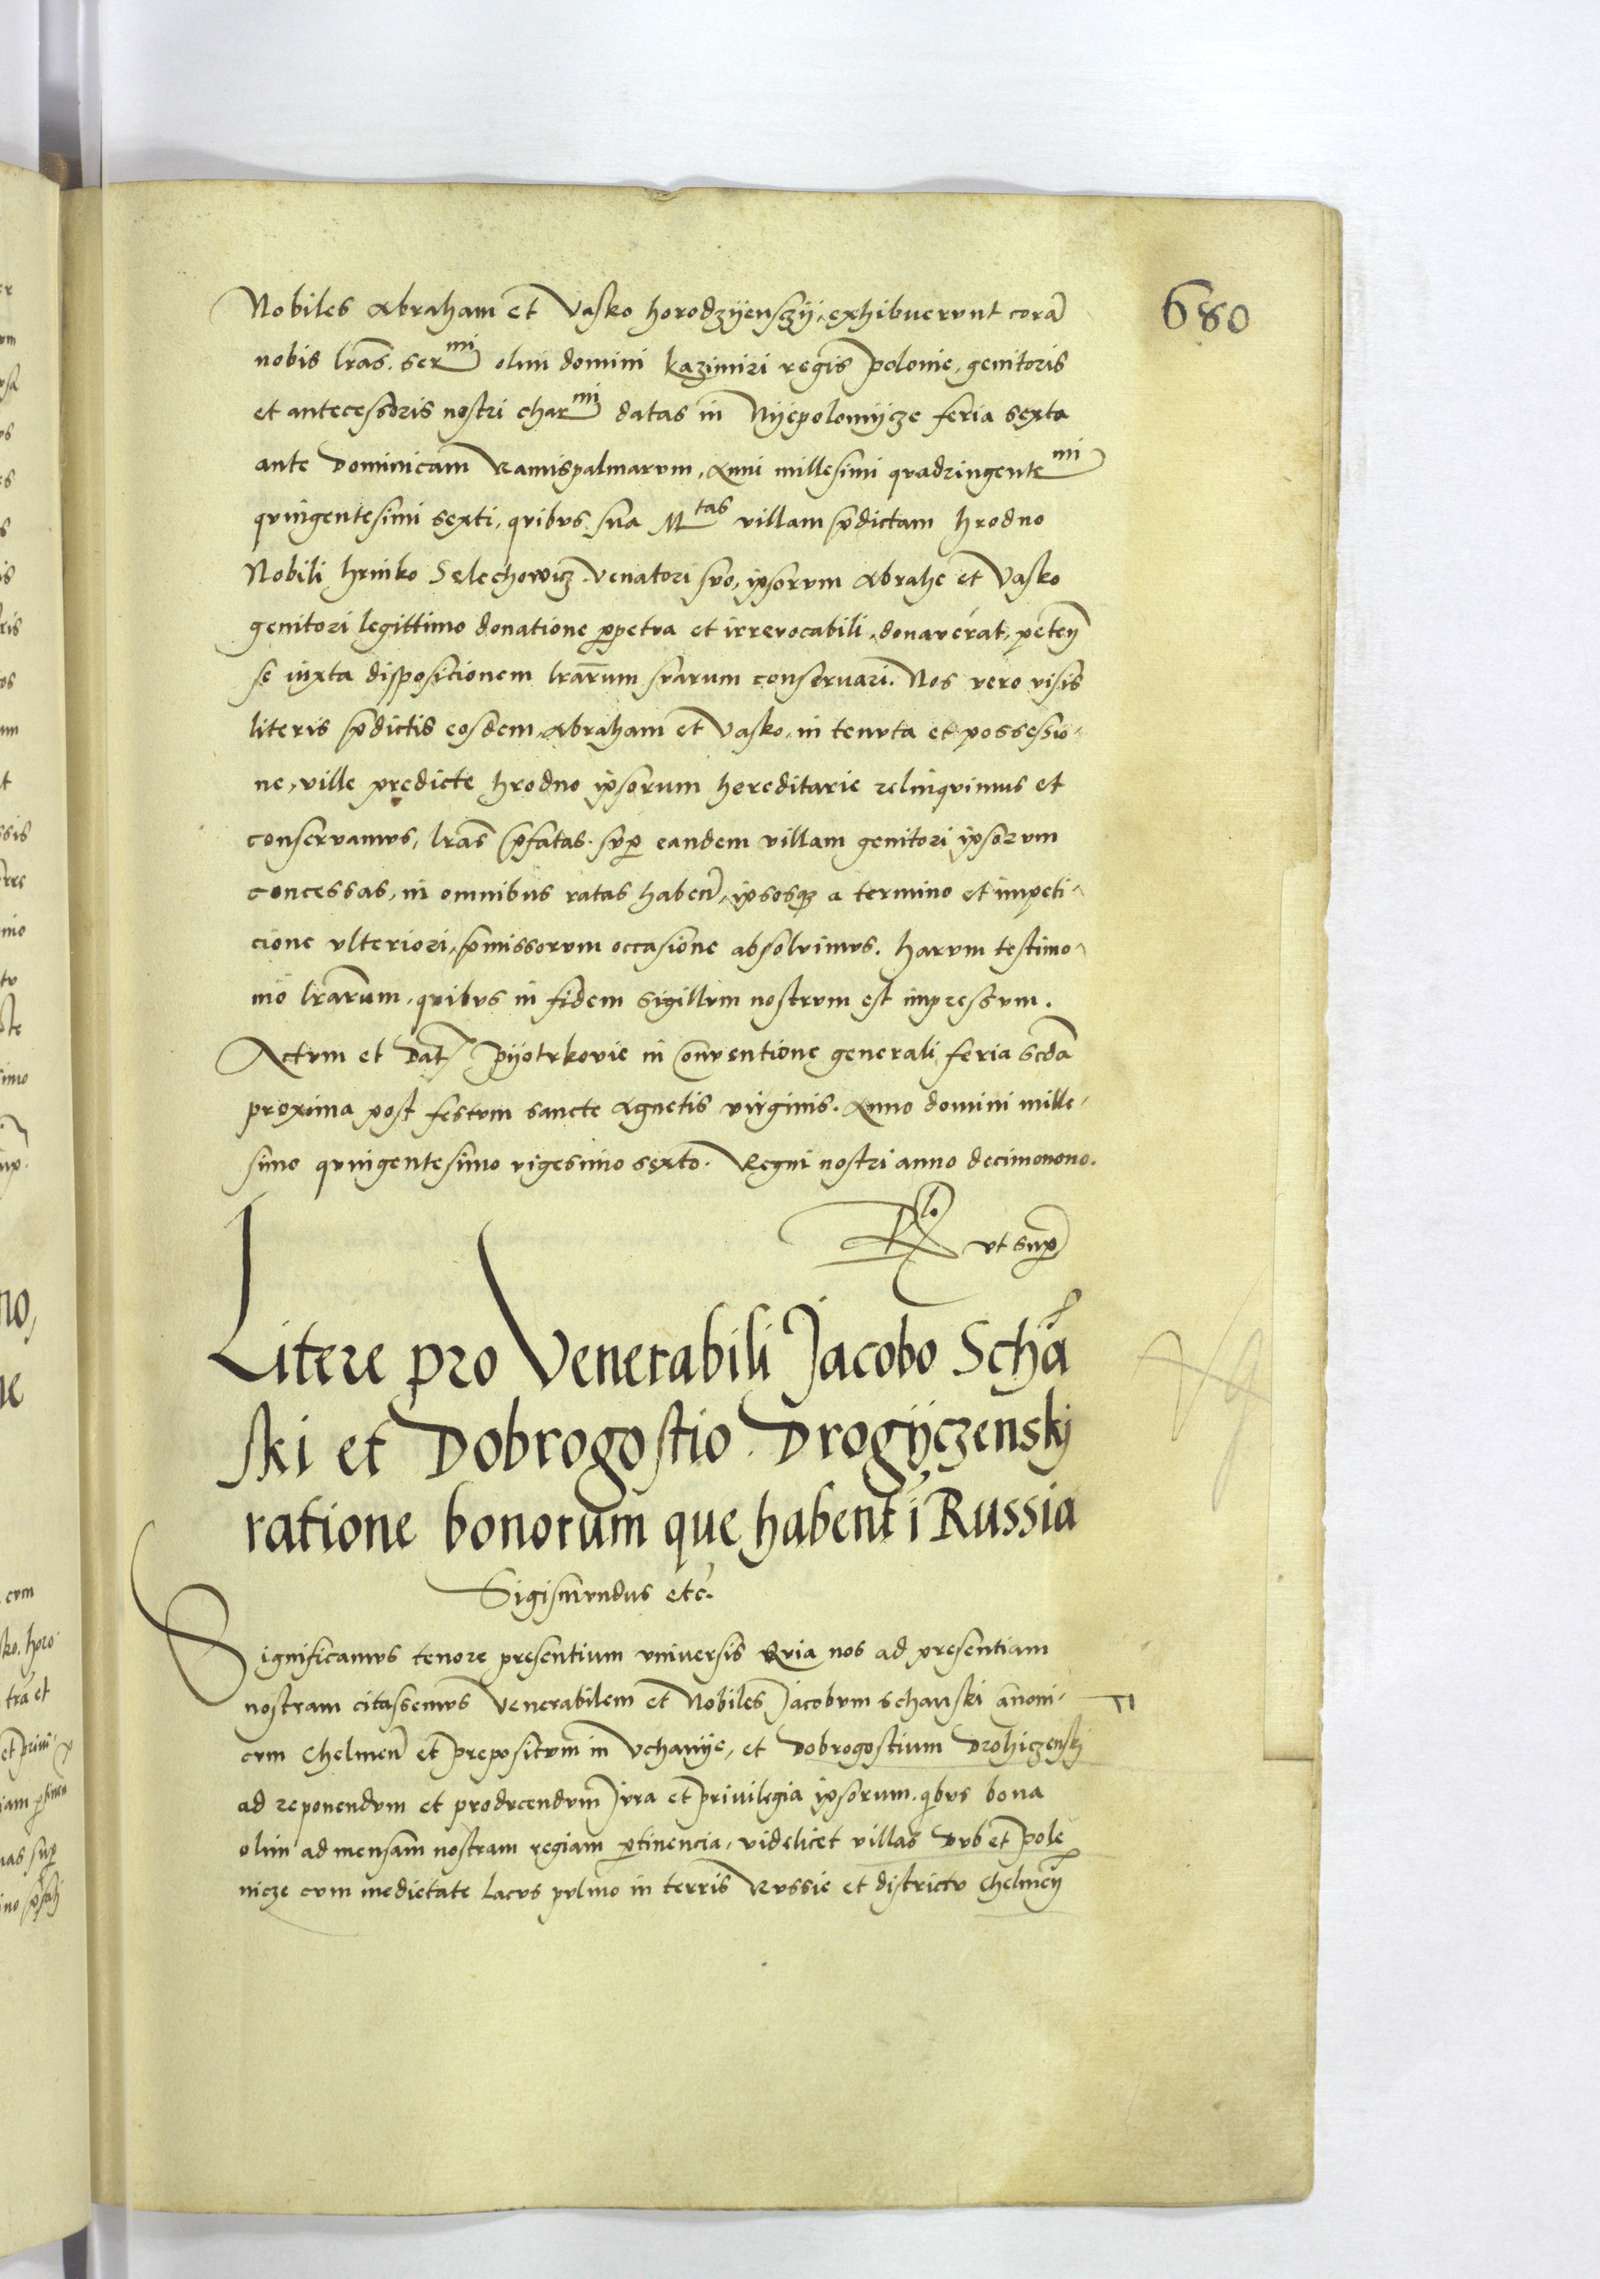 680
Nobiles Abraham et Vasko horodzyenszy, exhibuerunt corā
nobis lr̄as. ser^mi olim domini kazimiri regis polonie, genitoris
et antecessoris nostri char^mi datas in Nyepolomycze feria sexta
ante Dominicam Ramispalmarum, Anni millesimi quadringente^mi
quingentesimi sexti, quibus sua M^tas villam p̄dictam hrodno
Nobili hrinko Selechowicz venatori suo, ipsorum Abrahe et Vasko
genitori legittimo donatione ꝑpetua et irrevocabili, donaverat, peteñ
se iuxta disposicionem lr̄arum sr̄arum conservari. Nos vero visis
literis p̄dictis eosdem Abraham et Vasko, in tenuta et possessio-
ne, ville predicte hrodno ipsorum hereditarie relinquimus et
conservamus, lr̄as p̄fatas. suꝑ eandem villam genitori ipsorum
concessas, in omnibus ratas habeñ, ipsosqꝫ a termino et impeti-
cione ulteriori, p̄missorum occasione absolvimus. harum testimo-
nio lr̄arum, quibus in fidem sigillum nostrum est impressum.
Actum et Dat̄ Pyotrkovie in Conventione generali feria scd̄a
proxima post festum sancte Agnetis virginis. Anno domini mille-
simo quingentesimo vigesimo sexto. Regni nostri anno decimonono.
Rlo ut supꝛ
Litere pro Venerabili Jacobo Schā
ski et Dobrogostio Drogyczenskj
ratione bonorum que habent ī Russia
Sigismundus etc.
Significamus tenore presentium universis Quia nos ad presentiam
nostram citassemus Venerabilem et Nobiles Jacobum schanski canoni-
cum Chelmeñ et prepositum in Uchanye, et Dobrogostium Drohiczenskj
ad reponendum et producendum Jura et privilegia ipsorum. qibus bona
olim ad mensam nostram regiam ꝑtinencia, videlicet villas Dub et pole
nicze cum medietate Lacus pulmo in terris Russie et districtu Chelmeñ